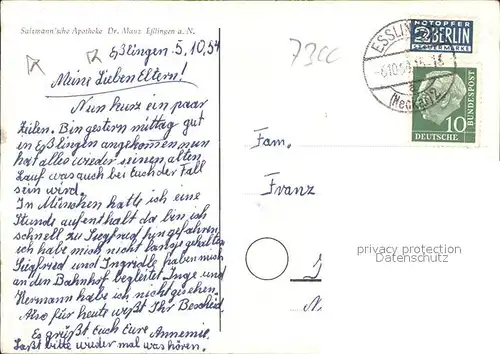 Salzmann'sche Apotheke Dr. Mauz Eßlingen a. N.
Eßlingen 5.10.54
Meine Lieben Eltern!
Nun kurz ein paar
Zeilen. Bin gestern mittag gut
in Eßlingen angekommen nun
hat alles wieder seinen alten
Lauf was auch bei Euch der Fall
sein wird.
In München hatte ich eine
Stunde aufenthalt da bin ich
schnell zu Siegfried hin gefahren
ich habe mich nicht lange gehalten
Siegfried und Ingridle haben mich
an den Bahnhof begleitet Inge und
Hermann habe ich nicht gesehen.
Also für heute wißt Ihr Bescheid.
Es grüßt Euch Eure Annemie.
Laßt bitte wieder mal was hören.
73CC
NOTOPFER
2 BERLIN
STEUERMARKE
ESSLINGEN
(Neckar) 2
DEUTSCHE
BUNDESPOST
10
Fam.
Franz
privacy protection
Datenschutz